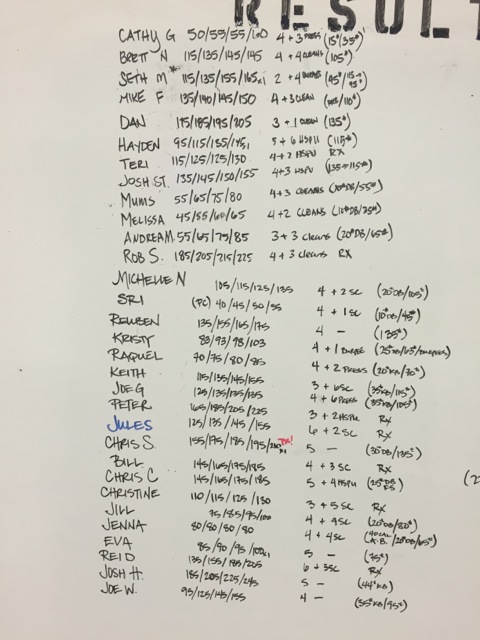 RESULT
CATHY G 50/55/55/60 4+3 PRESS (15#/35#)
BRETT N 115/135/145/145 4+4 CLEANS (105#)
SETH M* 115/135/155/165x1 2+4 (95#/15
MIKE F 135/140/145/150 4+3 CLEAN
DAN 175/185/195/205 3+1 CLEAN (135#)
HAYDEN 95/115/135/145, 5+6 HSPU (115#)
TERI 115/125/125/130 4+2 HSPU RX
JOSH ST. 135/145/150/155 4+3 HSPU
MUMS 55/65/75/80 4+3 CLEANS
MELISSA 45/55/60/65 4+2 CLEANS
ANDREA M. 55/65/75/85 3+3 cleans (20#DB/65#)
ROB S. 185/205/215/225 4+3 cleans RX
MICHELLE N 105/115/125/135 4+2 SC (20#DB/105#)
SRI (PC) 40/45/50/55 4+1 SC (10#DB/45#)
REUBEN 135/155/165/175 4 - (135#)
KRISTY 83/93/98/103 4+1
RAQUEL 70/75/80/85 4+2 PRESS
KEITH 115/135/145/155
JOE G 125/135/135/135 3+6SC (35#KB/115#)
PETER 165/185/205/225 4+6 PRESS (35#KB/105#)
JULES 125/135/145/155 3+2 HSPU Rx
CHRIS S. 155/175/185/195/ x1 PR! 6+2 SC Rx
BILL 5 - (30#DB/135#)
CHRIS C 145/165/175/185 4+3 SC Rx
CHRISTINE 145/165/175/185 5+4 HSPU (25#DB
JILL 110/115/125/130
JENNA 75/85/95/100 3+5 SC Rx
EVA 80/80/80/80 4+4SC (20#DB/80#)
REID 85/90/95/100x1 4+4SC
JOSH H. 135/155/185/205 5 - (75#)
JOE W. 185/205/225/245 6+3SC Rx
5 - (44#KB)
95/125/145/155 4 - (35#KB/95#)